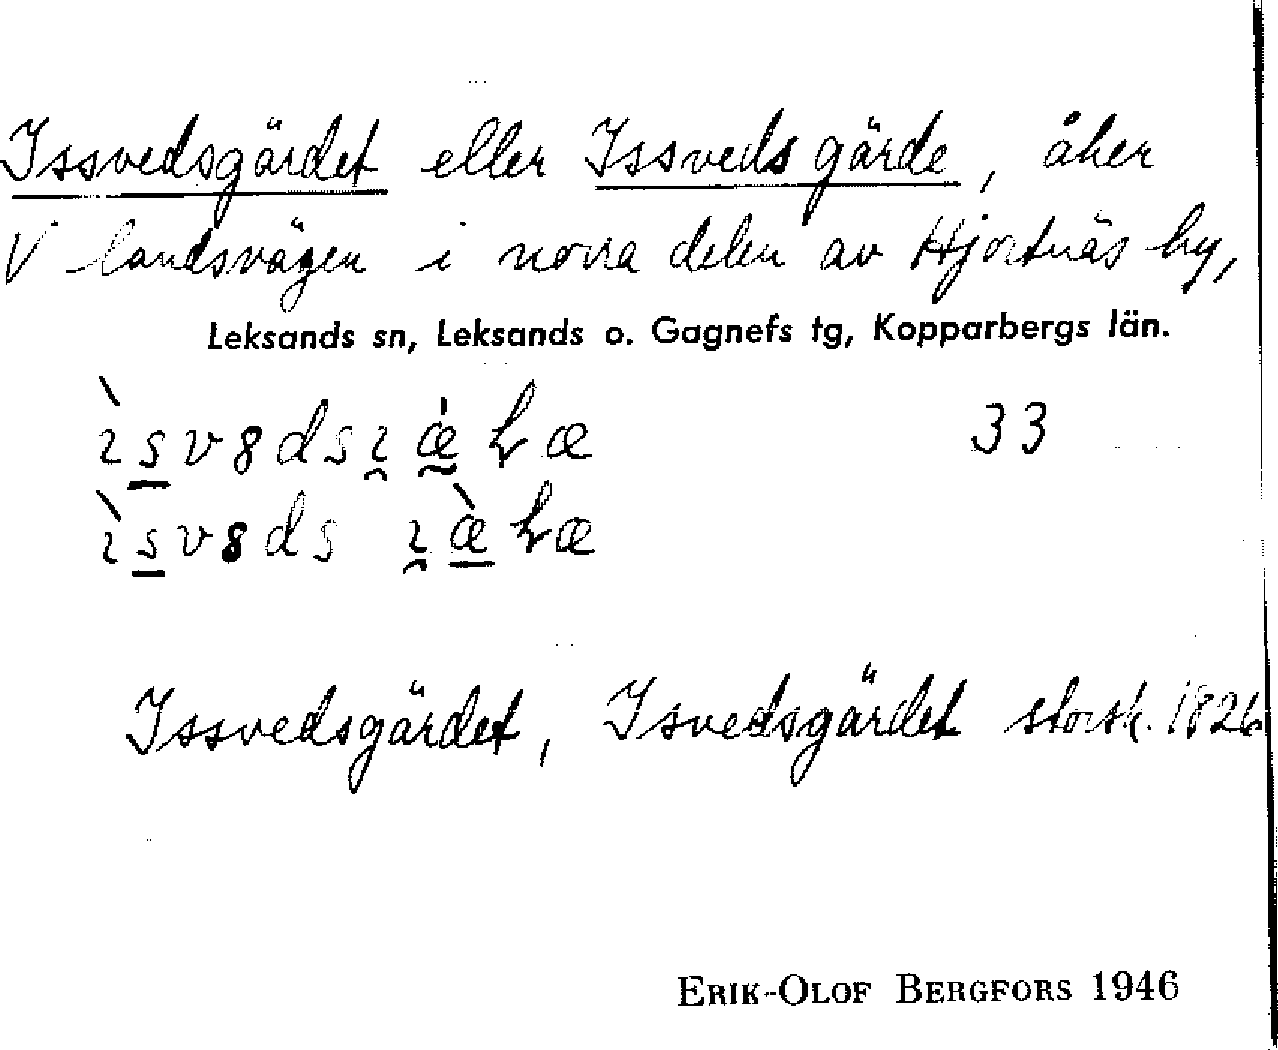 Issvedsgärdet eller Issvedsgärde, åker
V landsvägen i norra delen av Hjortnäs by,
Leksands sn, Leksands o. Gagnefs tg, Kopparbergs län.
33
Issvedsgärdet, Isvedsgärdet storsk. 1826
ERIK-OLOF BERGFORS 1946